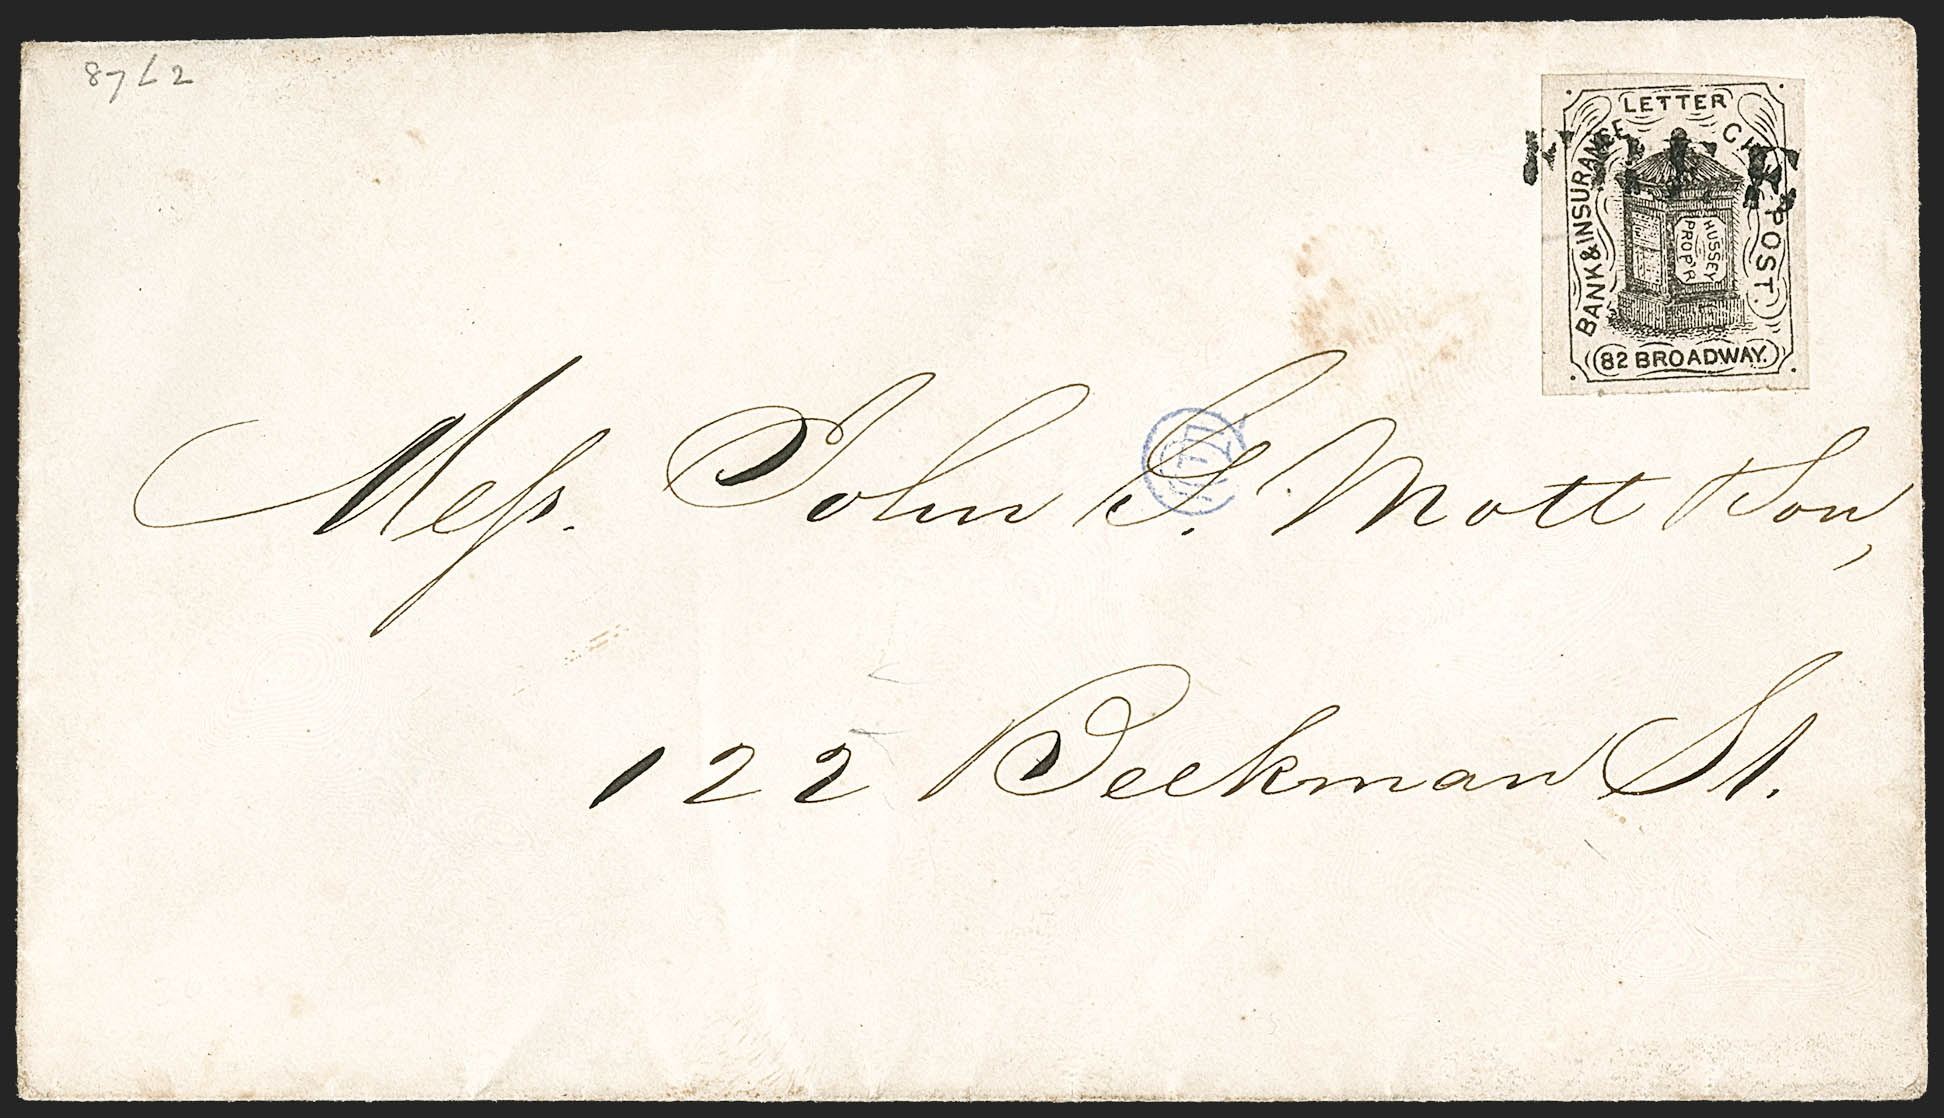 87L2
LETTER
BANK & INSURANCE
CITY POST.
HUSSEY
PROP'R
82 BROADWAY.
Mess. John G. Mott & Son,
122 Beekman St.